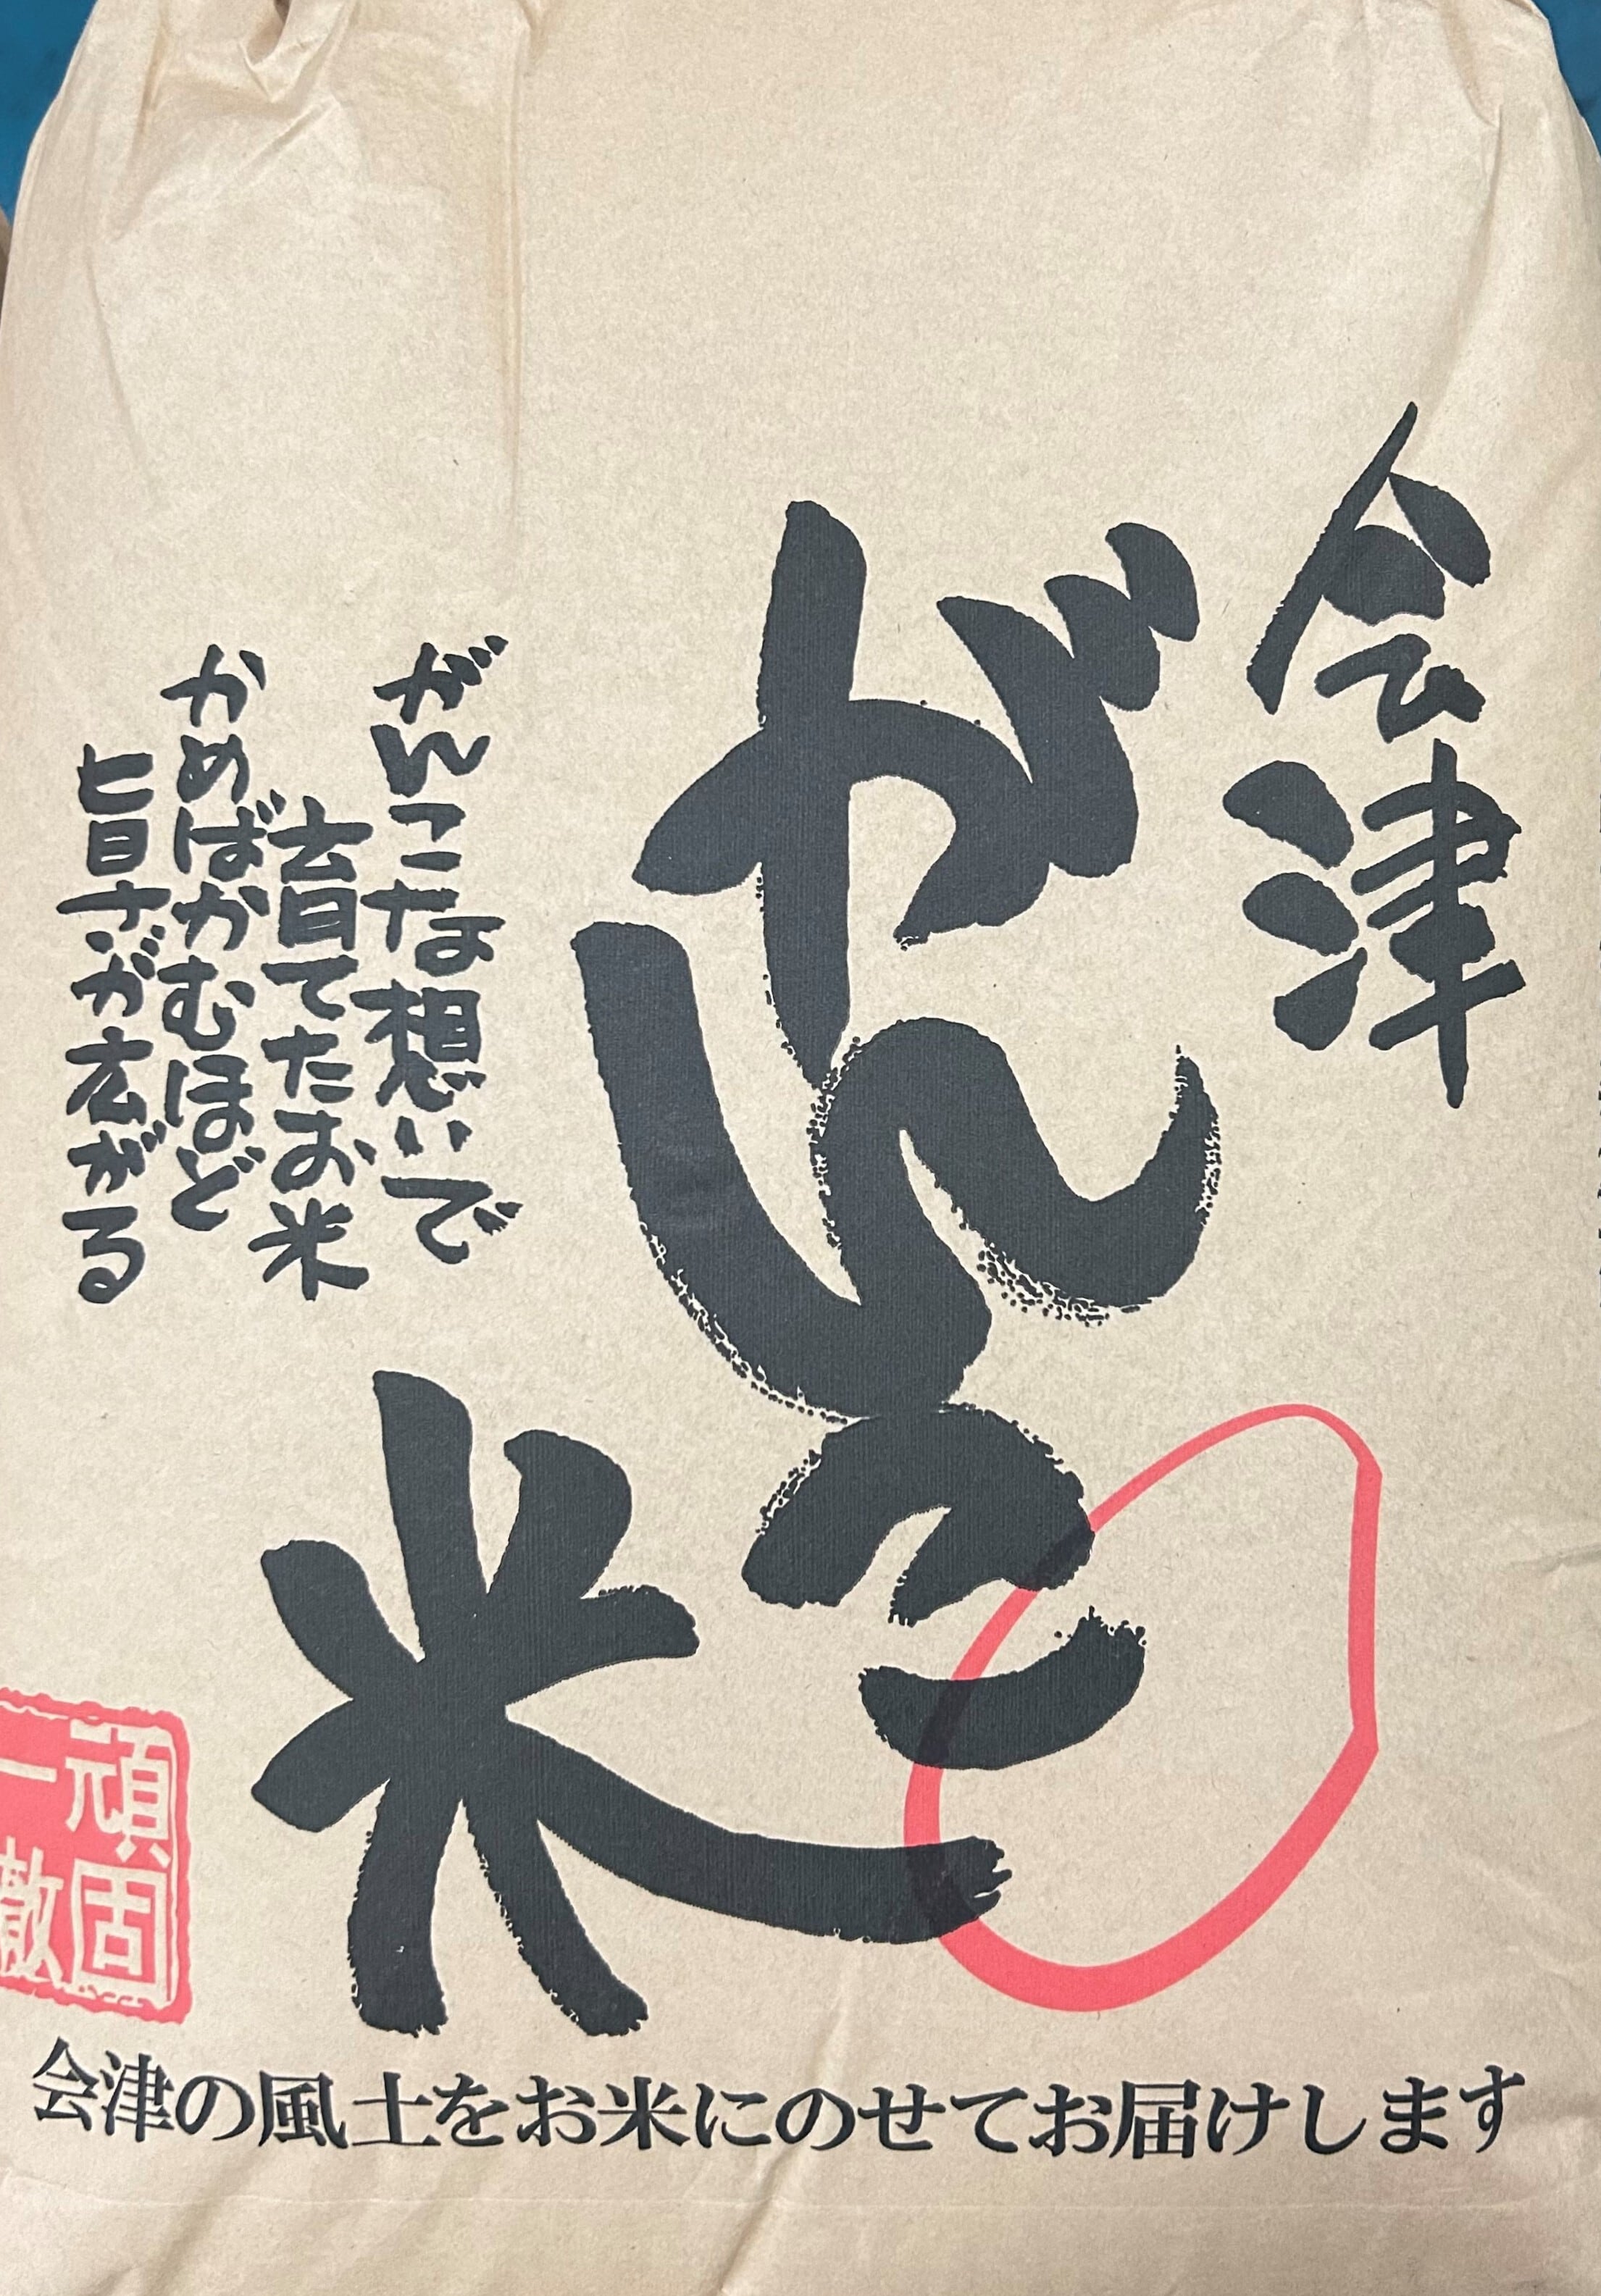 会津
がんこ
米
がんこな想いで
育てたお米
かめばかむほど
旨さが広がる
頑固
一徹
会津の風土をお米にのせてお届けします